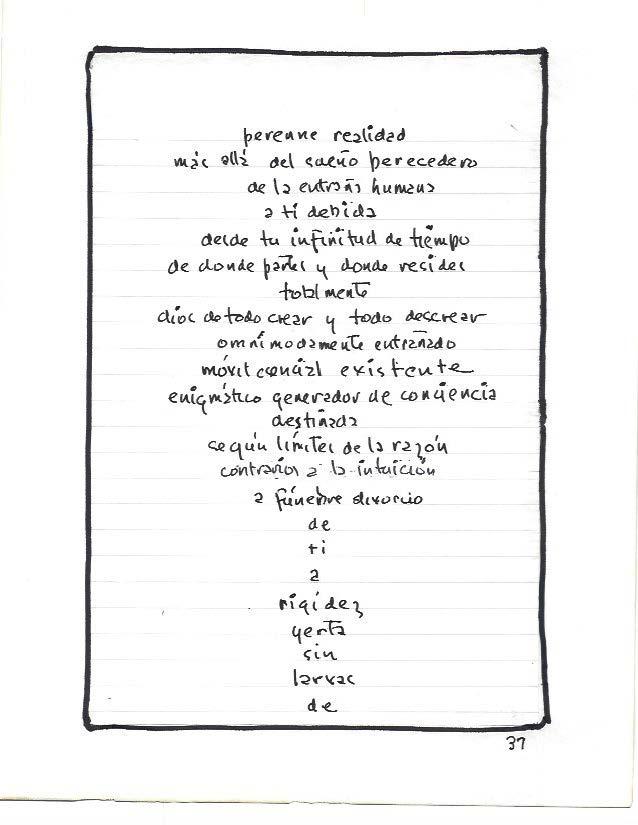 perenne realidad
más allá del sueño perecedero
de la entraña humana
a ti debida
desde tu infinitud de tiempo
de donde partes y donde resides
totalmente
dios de todo crear y todo descrear
omnímodamente entrañado
móvil esencial existente
enigmático generador de conciencia
destinada
según límites de la razón
contrarios a la intuición
a fúnebre divorcio
de
ti
a
rigidez
yerta
sin
larvas
de
37